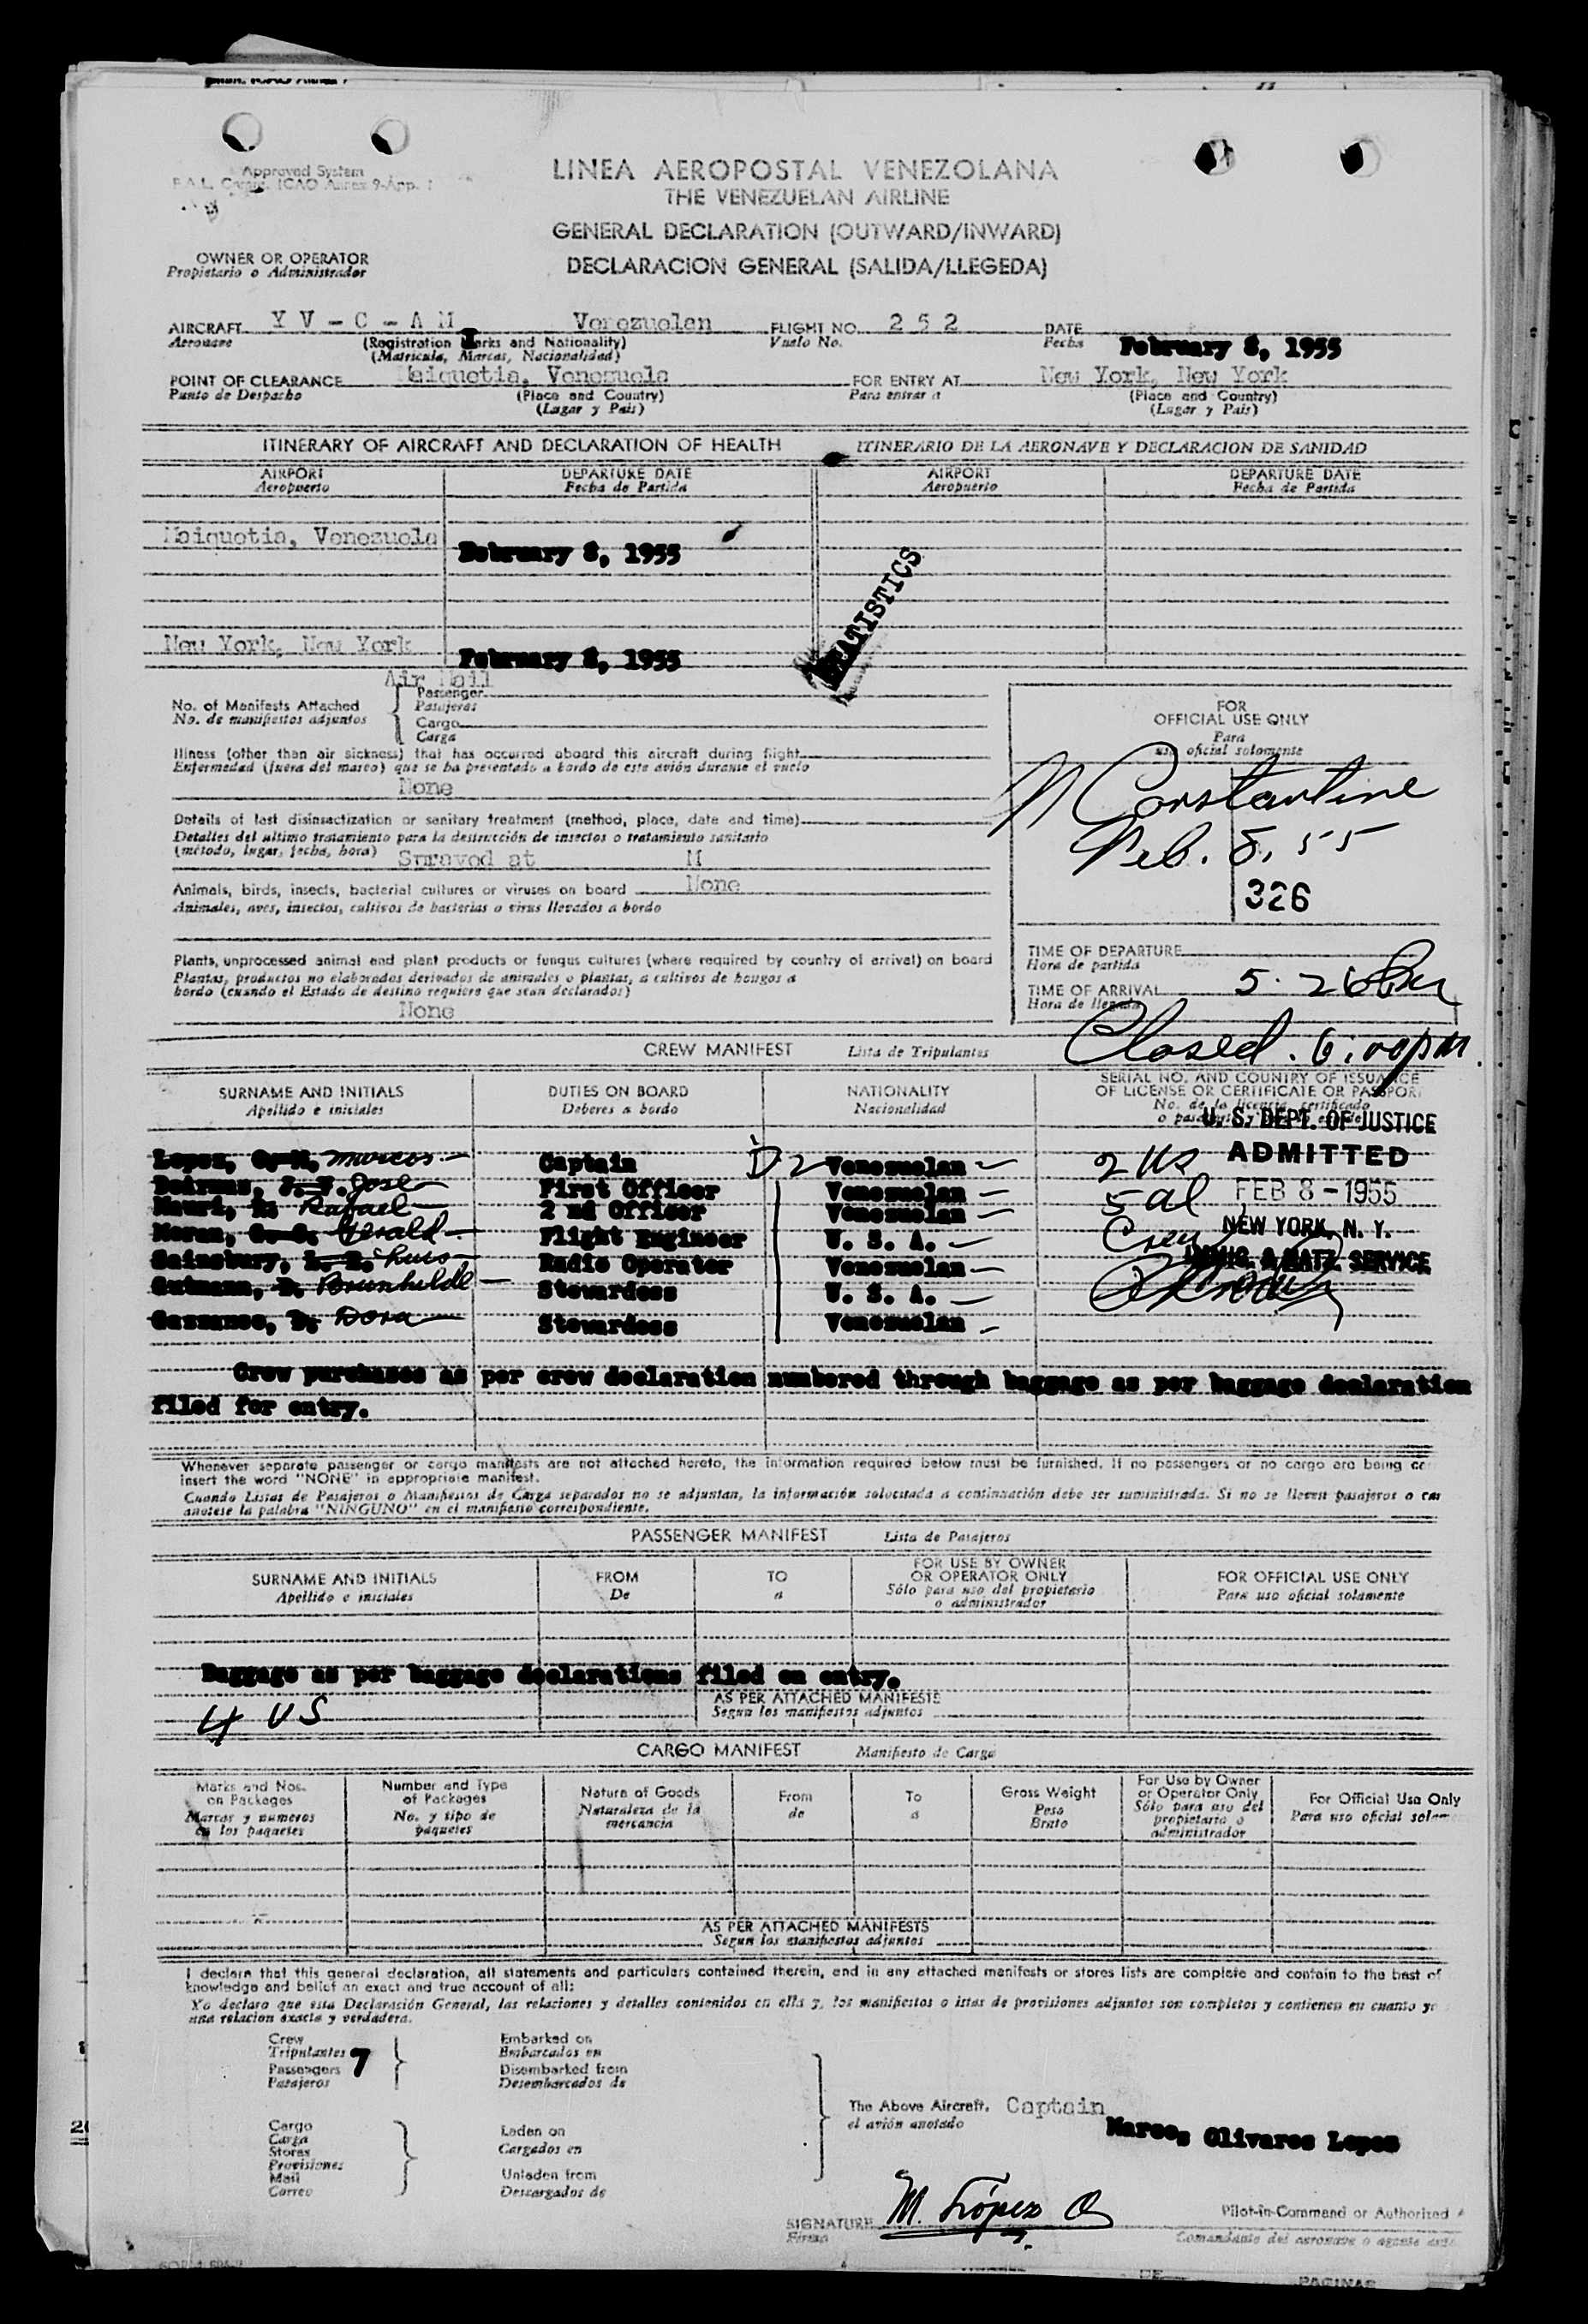 Approved System
LINEA AEROPOSTAL VENEZOLANA
THE VENEZUELAN AIRLINE
GENERAL DECLARATION (OUTWARD/INWARD)
DECLARACION GENERAL (SALIDA/LLEGEDA)
OWNER OR OPERATOR
Propietario o Administrador
AIRCRAFT Y V - C - A M Venezuelan FLIGHT NO. 2 5 2 DATE February 8, 1955
Aeronave (Registration Marks and Nationality) Vuelo No. Fecha
(Matricula, Marcas, Nacionalidad)
POINT OF CLEARANCE Maiquetia, Venezuela FOR ENTRY AT New York, New York
Punto de Despacho (Place and Country) Para entrar a (Place and Country)
(Lugar y Pais) (Lugar y Pais)
ITINERARY OF AIRCRAFT AND DECLARATION OF HEALTH ITINERARIO DE LA AERONAVE Y DECLARACION DE SANIDAD
AIRPORT DEPARTURE DATE AIRPORT DEPARTURE DATE
Aeropuerto Fecha de Partida Aeropuerto Fecha de Partida
Maiquetia, Venezuela February 8, 1955
STATISTICS
New York, New York February 8, 1955
Air Mail
No. of Manifests Attached Passenger
No. de manifiestos adjuntos Pasajeros
Cargo
Carga
FOR
OFFICIAL USE ONLY
Para
uso oficial solamente
Illness (other than air sickness) that has occurred aboard this aircraft during flight
Enfermedad (fuera del mareo) que se ha presentado a bordo de este avión durante el vuelo
None
N Constantine
Feb. 8, 55
326
Details of last disinsectization or sanitary treatment (method, place, date and time)
Detalles del ultimo tratamiento para la destrucción de insectos o tratamiento sanitario
(método, lugar, fecha, hora) Sprayed at M
Animals, birds, insects, bacterial cultures or viruses on board None
Animales, aves, insectos, cultivos de bacterias o virus llevados a bordo
Plants, unprocessed animal and plant products or fungus cultures (where required by country of arrival) on board
Plantas, productos no elaborados derivados de animales o plantas, a cultivos de hongos a
bordo (cuando el Estado de destino requiere que sean declarados)
None
TIME OF DEPARTURE
Hora de partida
TIME OF ARRIVAL 5.26 Pm
Hora de llegada
Closed. 6:00pm.
CREW MANIFEST Lista de Tripulantes
SURNAME AND INITIALS DUTIES ON BOARD NATIONALITY SERIAL NO. AND COUNTRY OF ISSUANCE
Apellido e iniciales Deberes a bordo Nacionalidad OF LICENSE OR CERTIFICATE OR PASSPORT
No. de la licencia, certificado
U. S. DEPT. OF JUSTICE
ADMITTED
FEB 8 - 1955
NEW YORK, N. Y.
IMMIG. & NATZ. SERVICE
2 US
5 al
Crew
Lopez, O. M. Marcos Captain D2 Venezuelan
J. V. Jose First Officer Venezuelan
Mauri, R. Rafael 2 nd Officer Venezuelan
Moran, G. G. Gerald Flight Engineer U. S. A.
Sainsbury, L. E. Luis Radio Operator Venezuelan
Gutmann, B. Brunhilde Stewardess U. S. A.
D. Dora Stewardess Venezuelan
Crew purchases as per crew declaration numbered through baggage as per baggage declaration
filed for entry.
Whenever separate passenger or cargo manifests are not attached hereto, the information required below must be furnished. If no passengers or no cargo are being
insert the word "NONE" in appropriate manifest.
Cuando Listas de Pasajeros o Manifiestos de Carga separados no se adjuntan, la información solocitada a continuación debe ser suministrada. Si no se lleven pasajeros o
anotese la palabra "NINGUNO" en el manifiesto correspondiente.
PASSENGER MANIFEST Lista de Pasajeros
SURNAME AND INITIALS FROM TO FOR USE BY OWNER OR OPERATOR ONLY FOR OFFICIAL USE ONLY
Apellido e iniciales De a Sólo para uso del propietario o administrador Para uso oficial solamente
Baggage as per baggage declarations filed on entry.
AS PER ATTACHED MANIFESTS
4 US Segun los manifiestos adjuntos
CARGO MANIFEST Manifiesto de Carga
Marks and Nos. on Packages Number and Type of Packages Nature of Goods From To Gross Weight For Use by Owner or Operator Only For Official Use Only
Marcas y numeros en los paquetes No. y tipo de paquetes Naturaleza de la mercancia de a Peso Bruto Sólo para uso del propietario o administrador Para uso oficial
AS PER ATTACHED MANIFESTS
Segun los manifiestos adjuntos
I declare that this general declaration, all statements and particulars contained therein, and in any attached manifests or stores lists are complete and contain to the best of
knowledge and belief an exact and true account of all:
Yo declaro que esta Declaración General, las relaciones y detalles contenidos en ella y, los manifiestos o istas de provisiones adjuntos son completos y contienen en cuanto yo
una relacion exacta y verdadera.
Crew Embarked on
Tripulantes 7 Embarcados en
Passengers Disembarked from
Pasajeros Desembarcados de
The Above Aircraft. Captain
el avión anotado Marcos Olivares Lopez
Cargo Laden on
Carga Cargados en
Stores
Provisiones
Mail Unladen from
Correo Descargados de
SIGNATURE M. López O. Pilot-in-Command or Authorized
Firma Comandante del aeronave o agente
PAGINAS